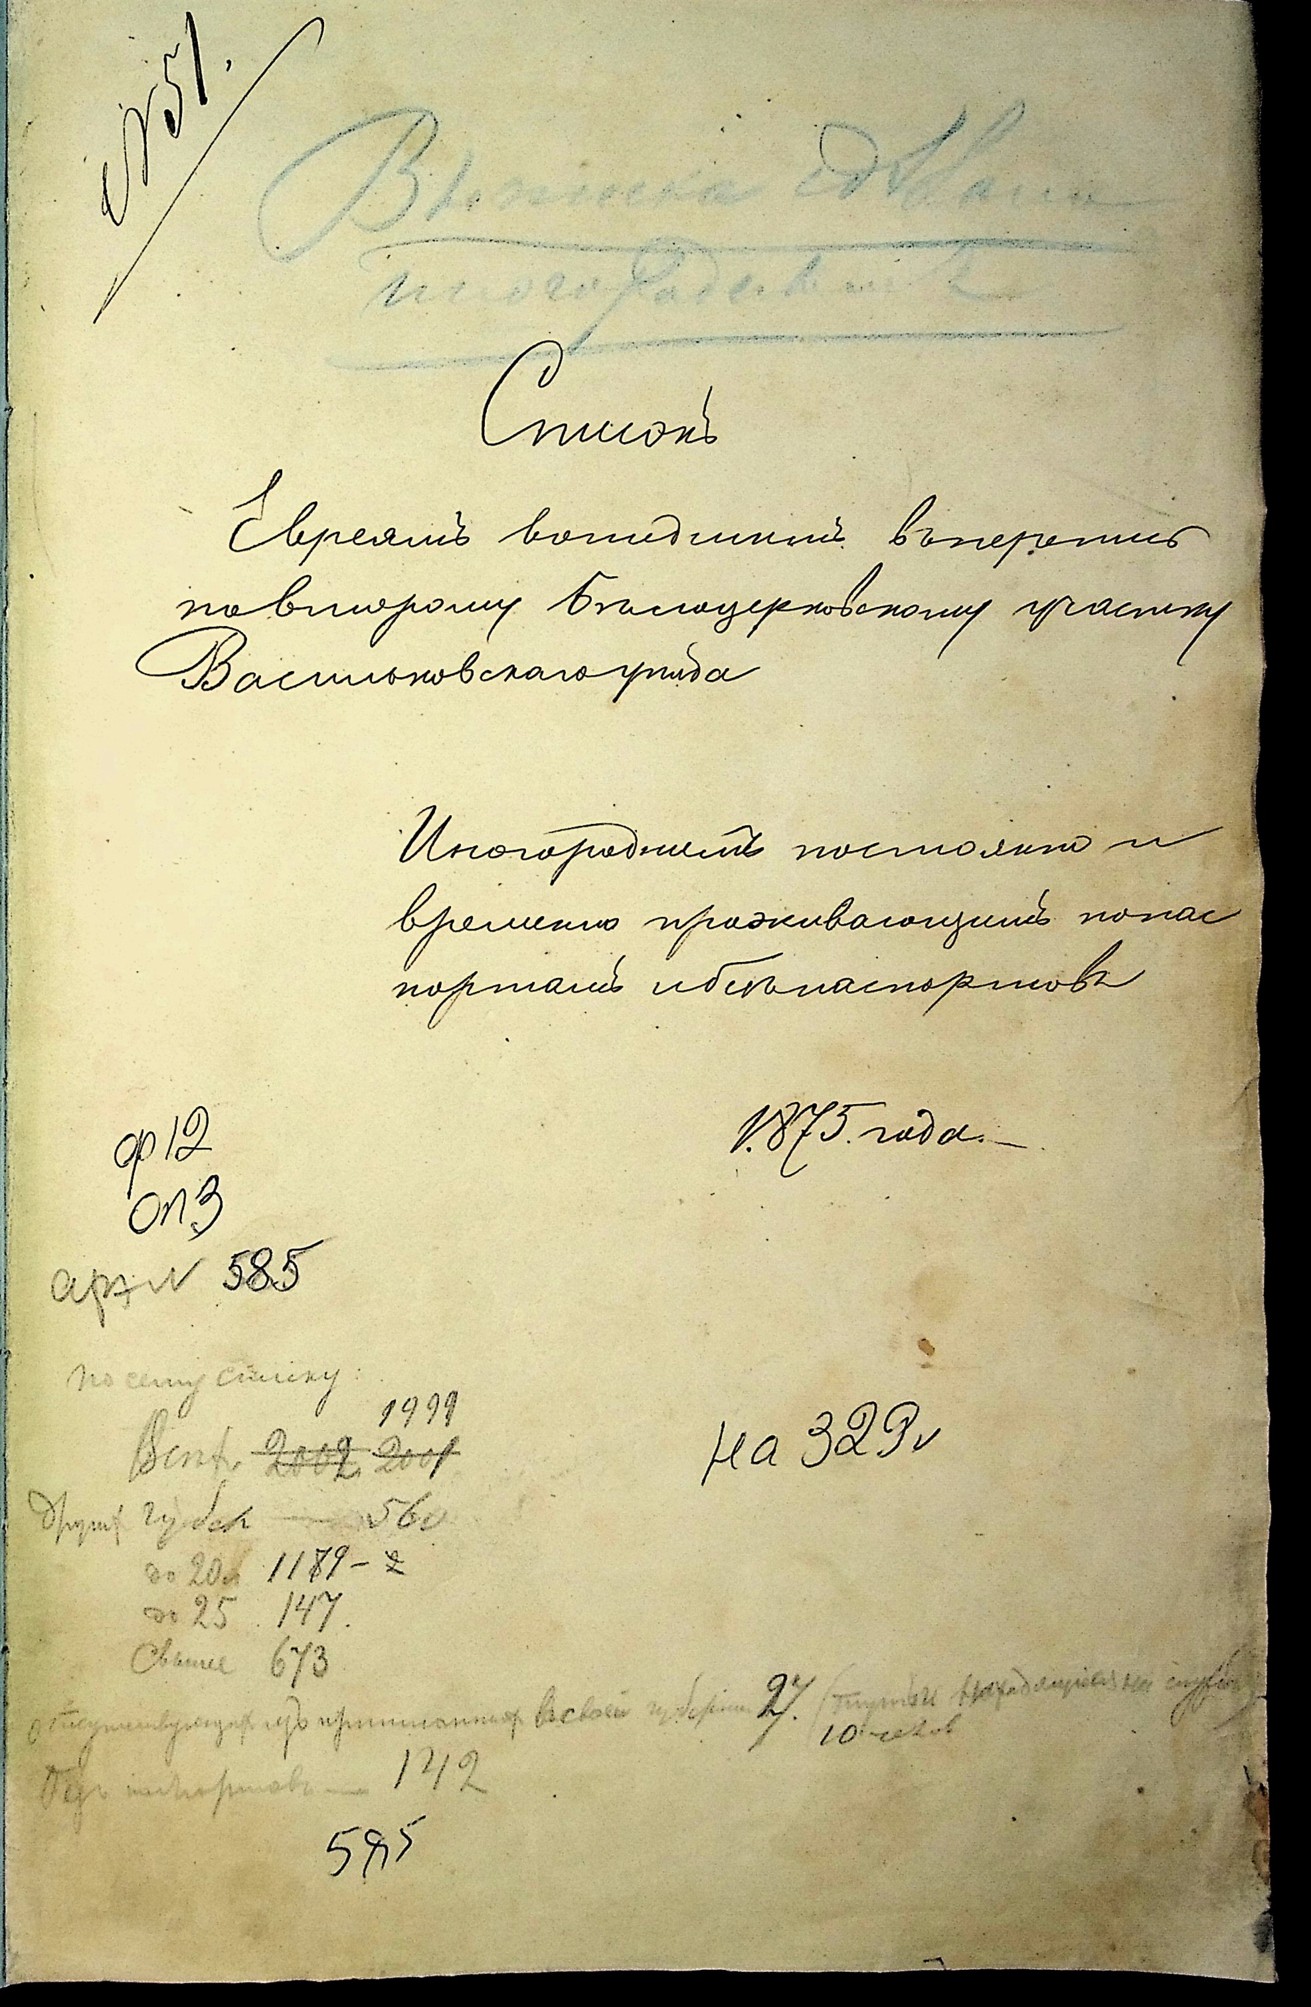 № 51.
Выписка сдѣлана
иногородныхъ
Списокъ
Евреямъ вошедшимъ въ перепись
по второму Бѣлоцерковскому участку
Васильковскаго уѣзда
Иногороднимъ постоянно и
временно проживающимъ по пас
портамъ и безъ паспортовъ
1875. года.
ф 12
оп 3
арх N 585
По сему списку:
1999
Всѣхъ 2002 2001
Другихъ губерн — 560
до 20 л 1189 - 2
до 25 147.
Свыше 673
отсутствующихъ изъ приписанныхъ въ своей губерніи 27. (
10 челов
Безъ паспортовъ — 142
на 323 л
585